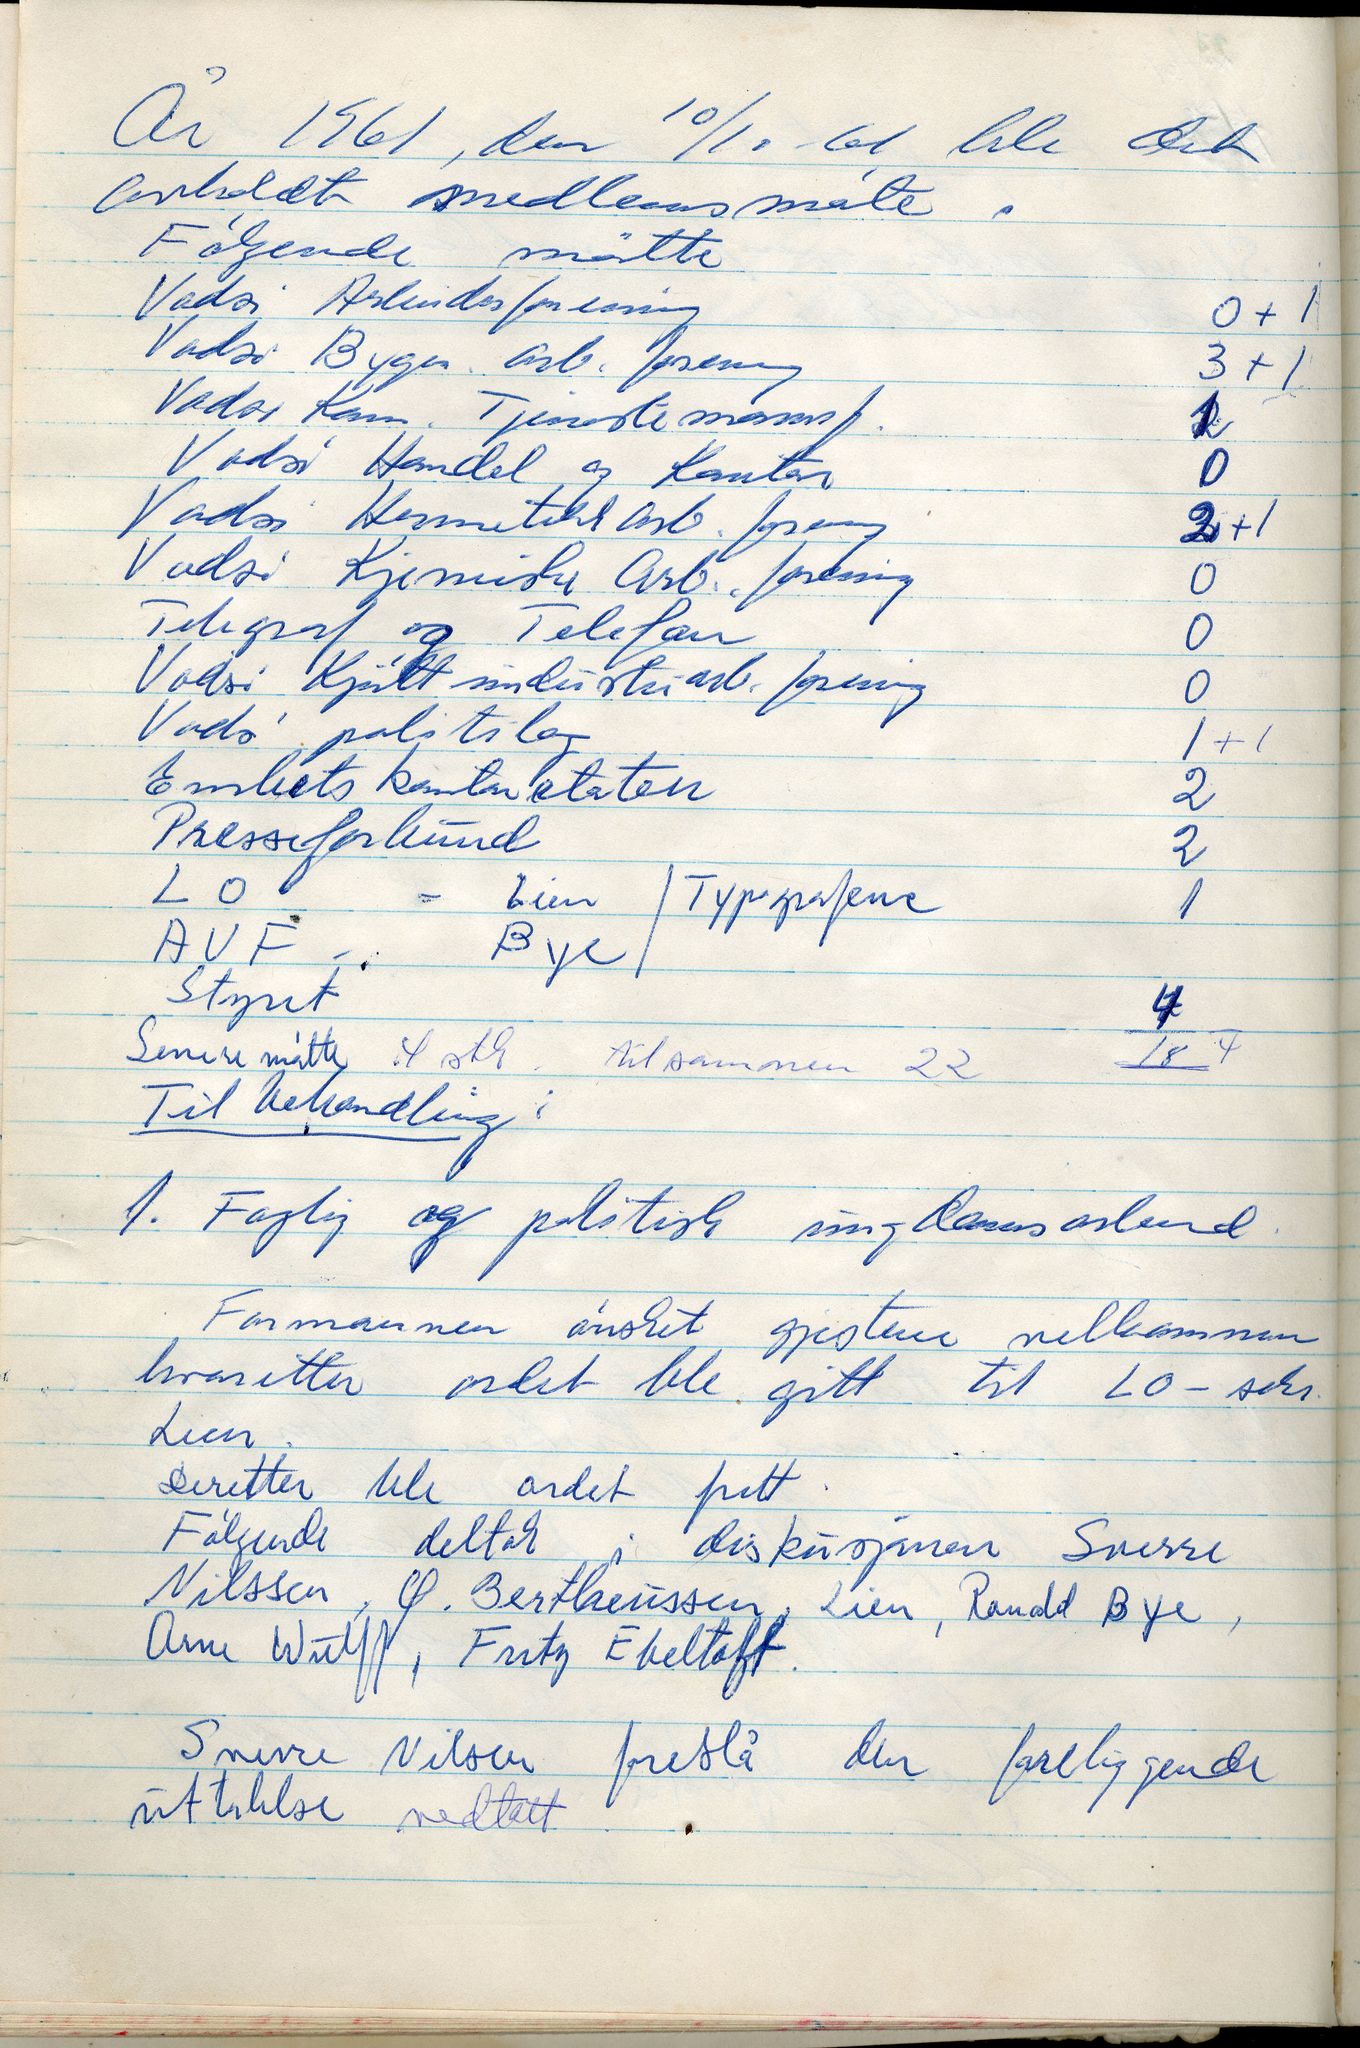 År 1961, den 10/10-61 ble det
avholdt medlemsmöte.
Fölgende mötte
Vadsö Arbeiderforening 0 + 1
Vadsö Bygn. arb. forening 3 + 1
Vadsö Kom. Tjenestemannsf. 1
Vadsö Handel og Kontor 0
Vadsö Hermetikk arb. forening 2 + 1
Vadsö Kjemiske Arb. forening 0
Telegraf og Telefon 0
Vadsö Kjöttindustriarb. forening 0
Vadsö politilag 1 + 1
Embetskontoretaten 2
Presseforbund 2
LO - Lien / Typografene 1
AUF - Bye
Styret 4
Senere mötte 4 stk. tilsammen 22 18 + 4
Til behandling:
1. Faglig og politisk ungdomsarbeid.
Formannen önsket gjestene velkommen
hvoretter ordet ble gitt til LO-sekr.
Lien.
Deretter ble ordet fritt.
Fölgende deltok i diskusjonen Sverre
Nilssen, O. Bertheussen, Lien, Ronald Bye,
Arne Wulff, Fritz Ebeltoft.
Sverre Nilsen foreslå den foreliggende
uttalelse vedtatt.